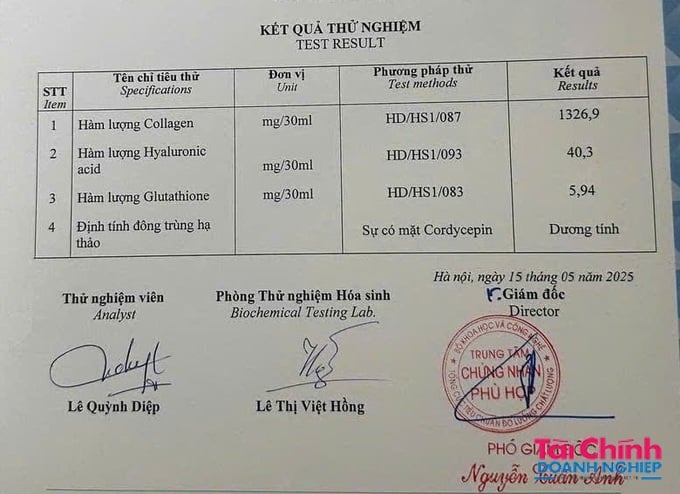 KẾT QUẢ THỬ NGHIỆM
TEST RESULT
STT
Item
Tên chỉ tiêu thử
Specifications
Đơn vị
Unit
Phương pháp thử
Test methods
Kết quả
Results
1 Hàm lượng Collagen mg/30ml HD/HS1/087 1326,9
2 Hàm lượng Hyaluronic acid mg/30ml HD/HS1/093 40,3
3 Hàm lượng Glutathione mg/30ml HD/HS1/083 5,94
4 Định tính đông trùng hạ thảo Sự có mặt Cordycepin Dương tính
Hà nội, ngày 15 tháng 05 năm 2025
Thử nghiệm viên
Analyst
Phòng Thử nghiệm Hóa sinh
Biochemical Testing Lab.
Giám đốc
Director
BỘ KHOA HỌC VÀ CÔNG NGHỆ
TRUNG TÂM
CHỨNG NHẬN
PHÙ HỢP
TIÊU CHUẨN ĐO LƯỜNG CHẤT LƯỢNG
Lê Quỳnh Diệp
Lê Thị Việt Hồng
PHÓ GIÁM ĐỐC
Nguyễn Xuân Anh
Tài Chính
DOANH NGHIỆP